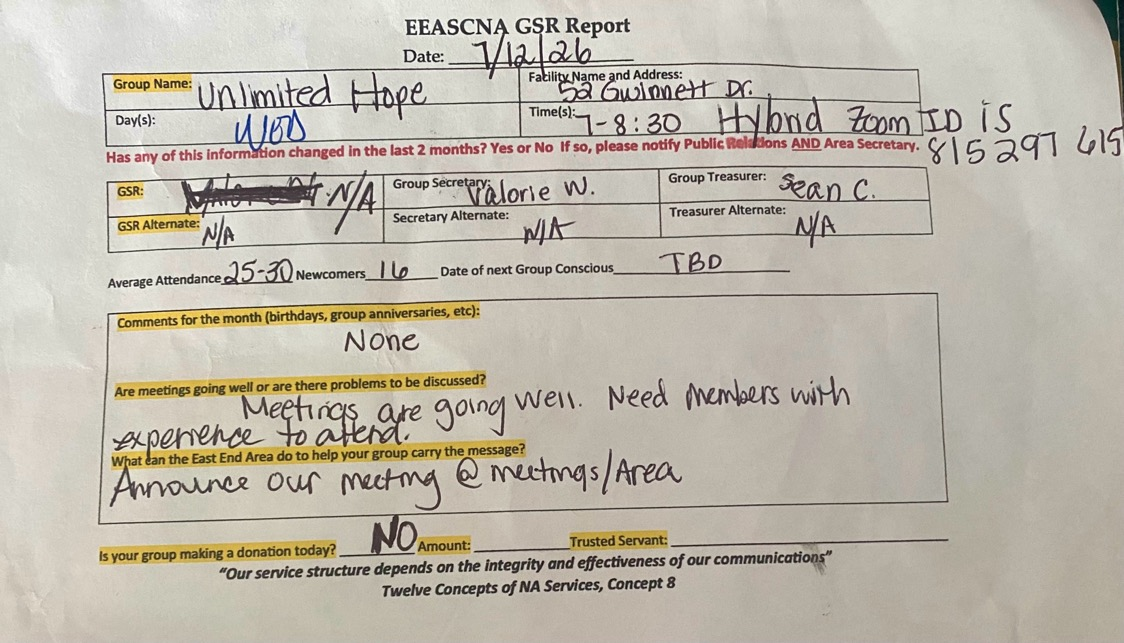 EEASCNA GSR Report
Date: 7/12/26
Group Name: Unlimited Hope
Facility Name and Address: 52 Gwinnett Dr.
Day(s): WED
Time(s): 7-8:30 Hybrid Zoom ID is 815 297 615
Has any of this information changed in the last 2 months? Yes or No If so, please notify Public Relations AND Area Secretary.
GSR: N/A
Group Secretary: Valorie W.
Group Treasurer: Sean C.
GSR Alternate: N/A
Secretary Alternate: N/A
Treasurer Alternate: N/A
Average Attendance 25-30 Newcomers 16 Date of next Group Conscious TBD
Comments for the month (birthdays, group anniversaries, etc):
None
Are meetings going well or are there problems to be discussed?
Meetings are going well. Need members with
experience to attend.
What can the East End Area do to help your group carry the message?
Announce our meeting @ meetings/Area
Is your group making a donation today? NO Amount: Trusted Servant:
"Our service structure depends on the integrity and effectiveness of our communications"
Twelve Concepts of NA Services, Concept 8